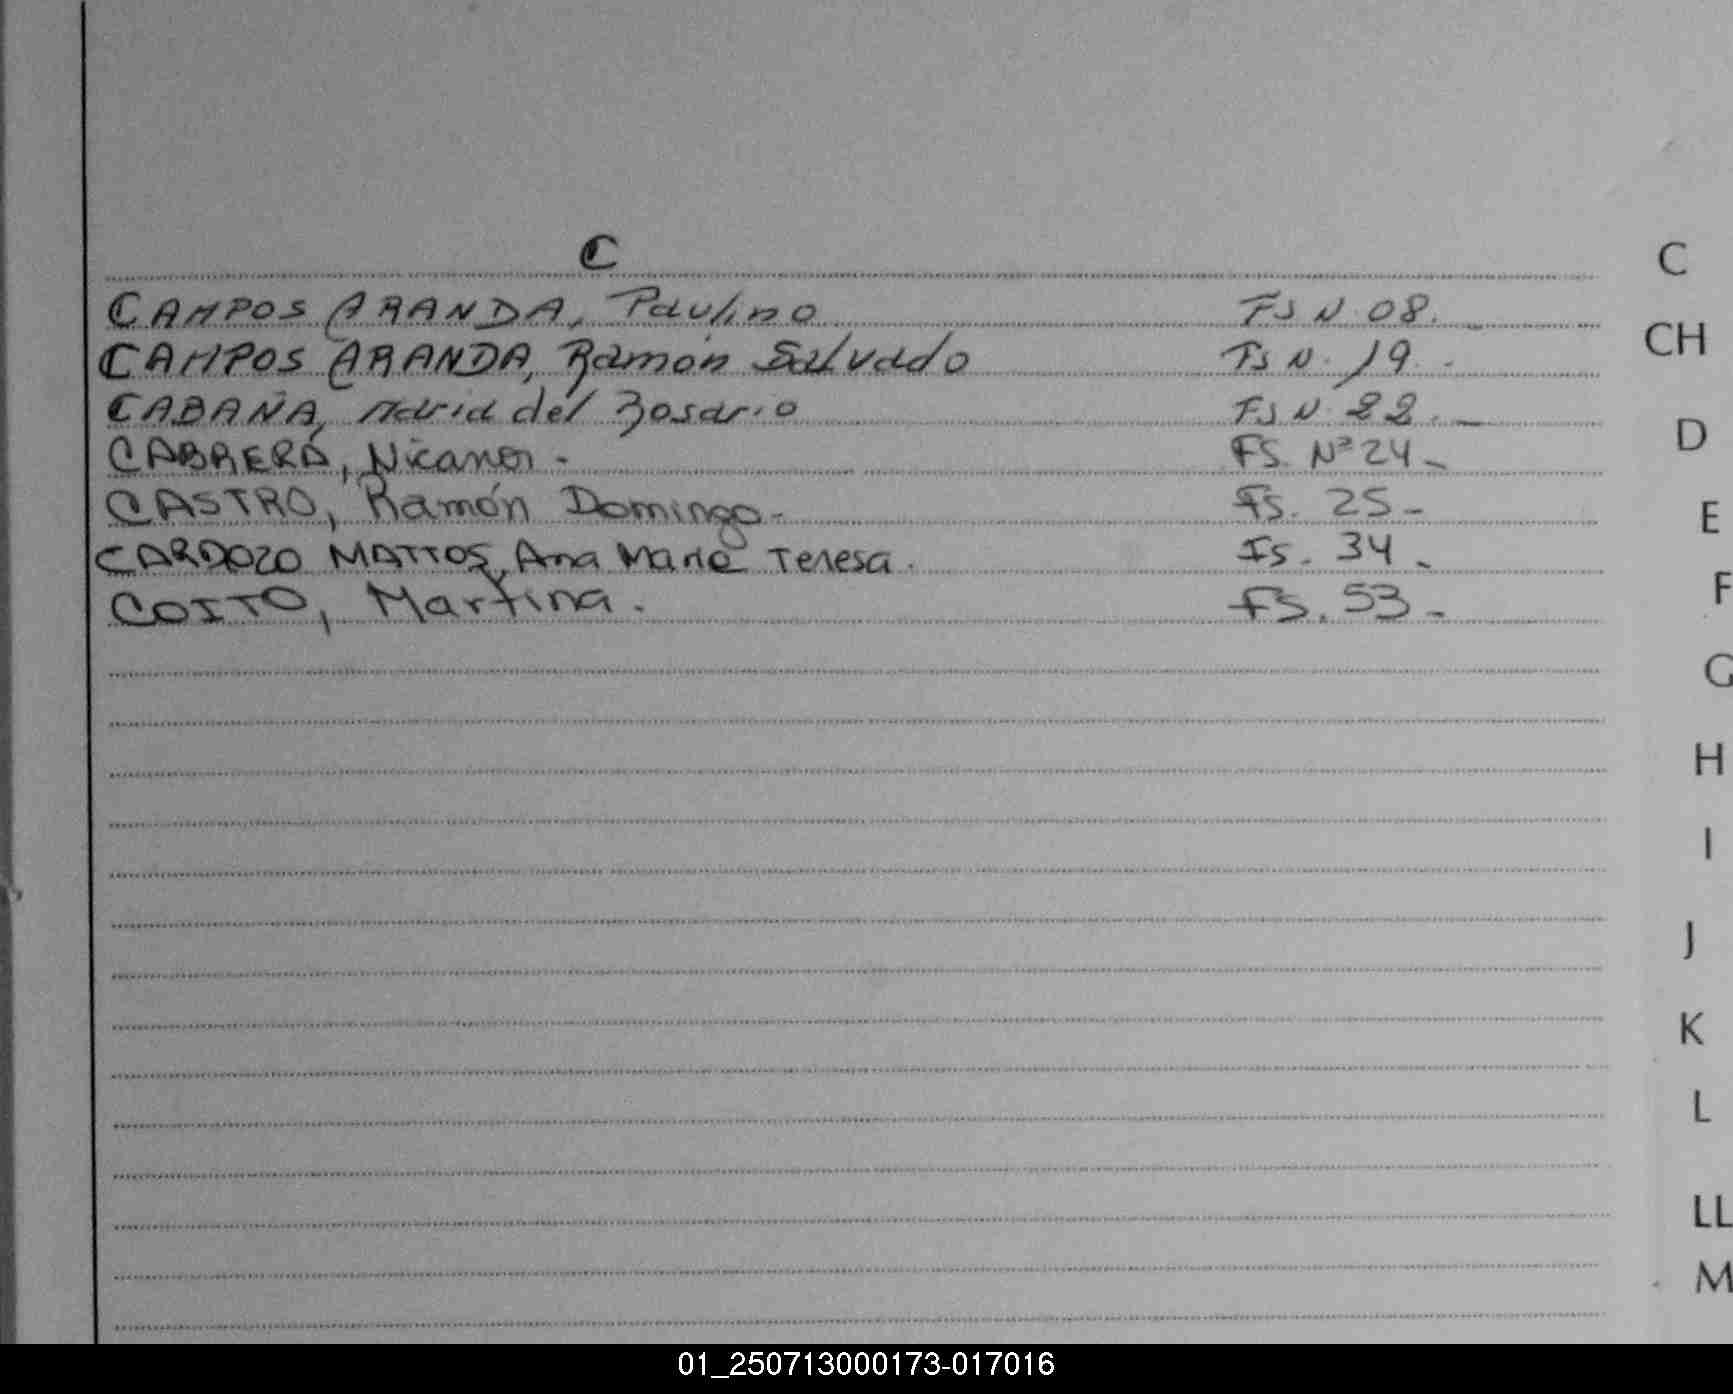 C
CAMPOS ARANDA, Paulino FS N 08.
CAMPOS ARANDA, Ramón Salvado FS N. 19.
CABAÑA, María del Rosario FS N. 22.
CABRERA, Nicanor. FS. Nº 24
CASTRO, Ramón Domingo. FS. 25
CARDOZO MATTOS, Ana María Teresa. FS. 34
COITO, Martina. FS. 53
C
CH
D
E
F
G
H
I
J
K
L
LL
M
01_250713000173-017016